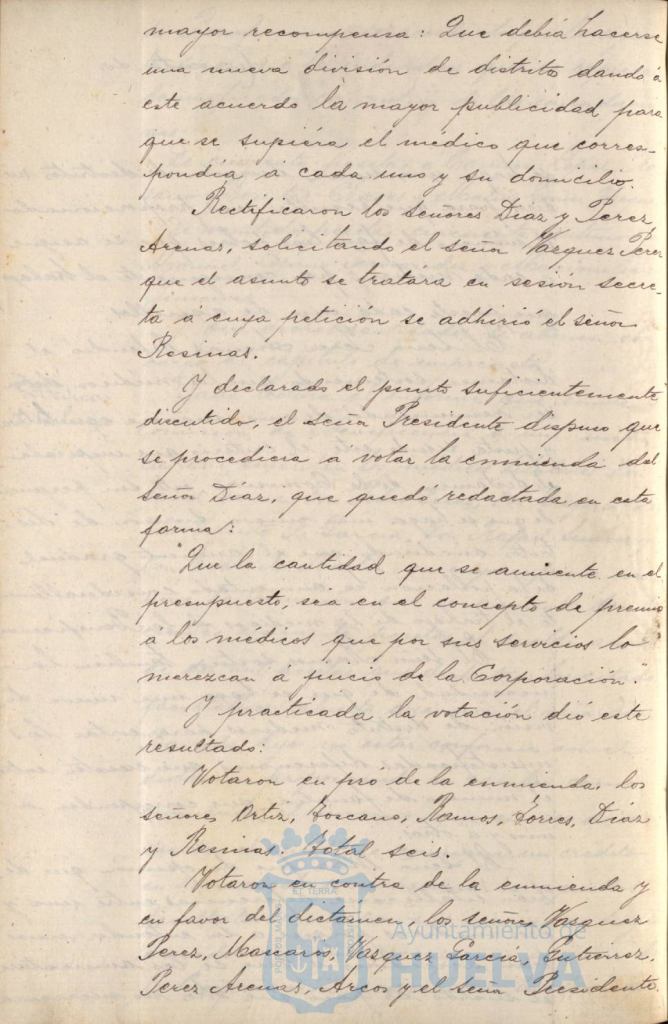 mayor recompensa: Que debía hacerse
una nueva división de distrito dando á
este acuerdo la mayor publicidad para
que se supiéra el médico que corres-
pondía á cada uno y su domicilio.
Rectificaron los señores Díaz y Perez
Arenas, solicitando el señor Vazquez Perez
que el asunto se tratára en sesión secre-
ta á cuya petición se adhirió el señor
Resinas.
Y declarado el punto suficientemente
discutido, el señor Presidente dispuso que
se procediera á votar la enmienda del
señor Díaz, que quedó redactada en esta
forma:
"Que la cantidad que se aumente en el
presupuesto, sea en el concepto de premio
á los médicos que por sus servicios lo
merezcan á juicio de la Corporación."
Y practicada la votación dió este
resultado:
Votaron en pró de la enmienda, los
señores Ortiz, Toscano, Ramos, Torres, Díaz
y Resinas. Total seis.
Votaron en contra de la enmienda y
en favor del dictamen, los señores Vazquez
Perez, Mascarós, Vazquez García, Gutierrez,
Perez Arenas, Arcos y el señor Presidente.
Ayuntamiento de
HUELVA